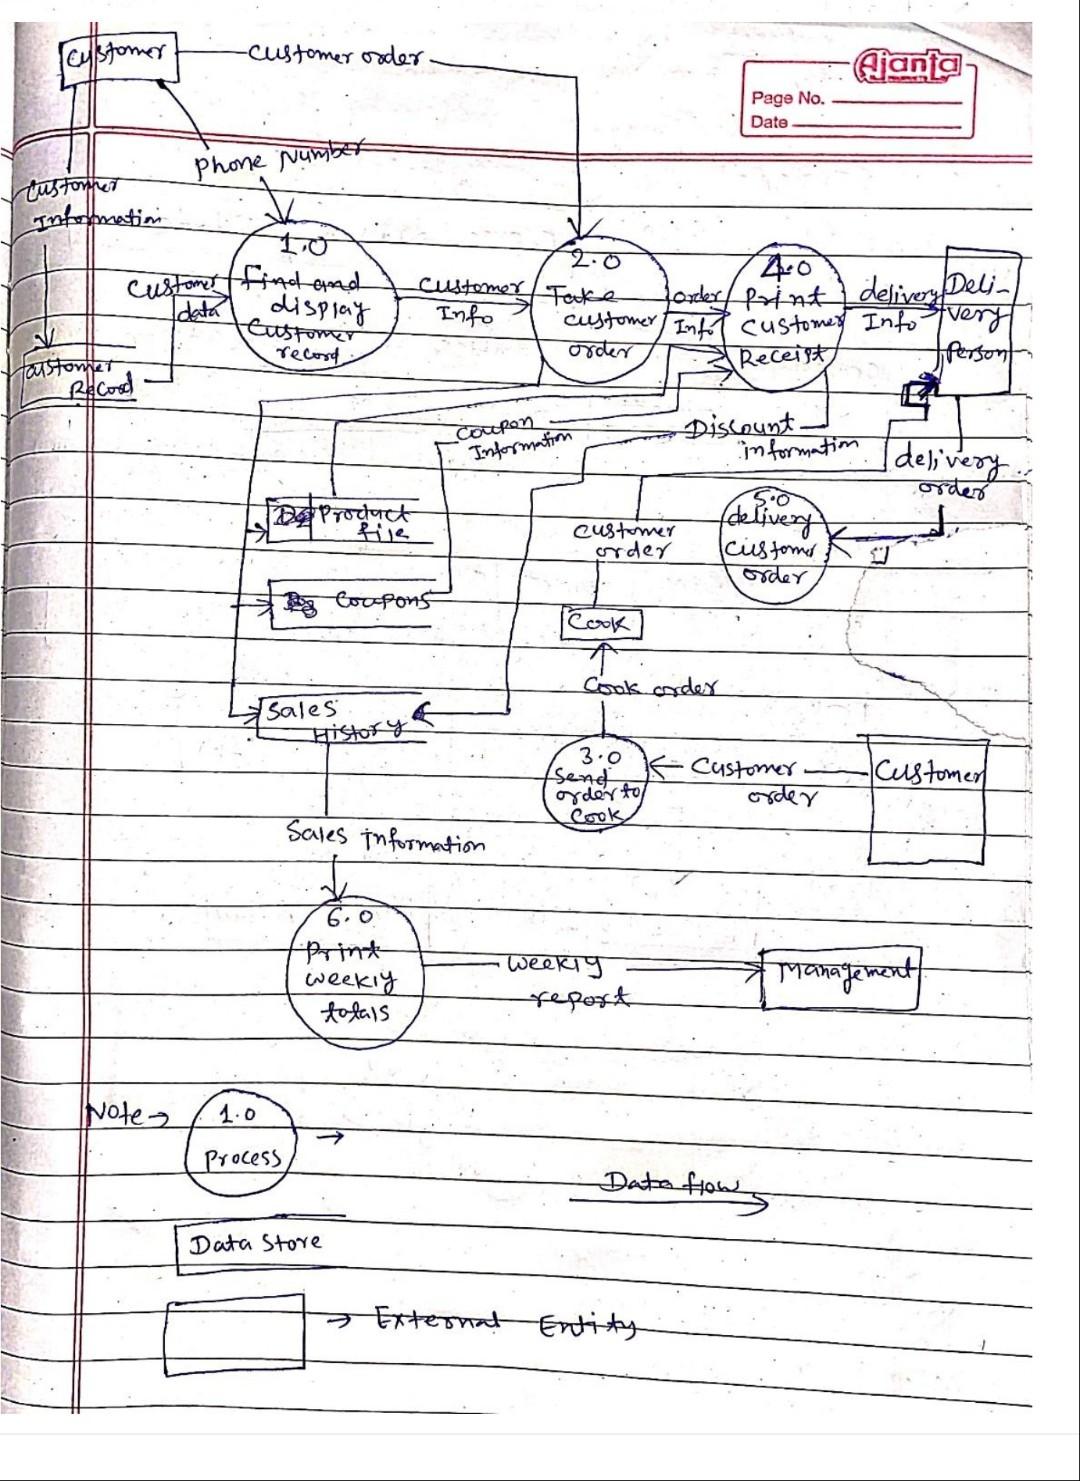 Customer
Customer order
Ajanta
Page No.
Date
Phone Number
Customer
Information
1.0
Find and
display
Customer
record
Customer
data
Customer
Record
Customer
Info
2.0
Take
customer
order
order
Info
4.0
Print
Customer
Receipt
delivery
Info
Deli-
very
Person
Coupon
Information
Discount
information
delivery
order
Product
file
Coupons
Customer
order
5.0
delivery
customer
order
Cook
Cook order
Sales
History
3.0
Send
order to
Cook
Customer
order
Customer
Sales information
6.0
Print
weekly
totals
weekly
report
Management
Note →
1.0
Process
→
Data flow
Data Store
→ External Entity